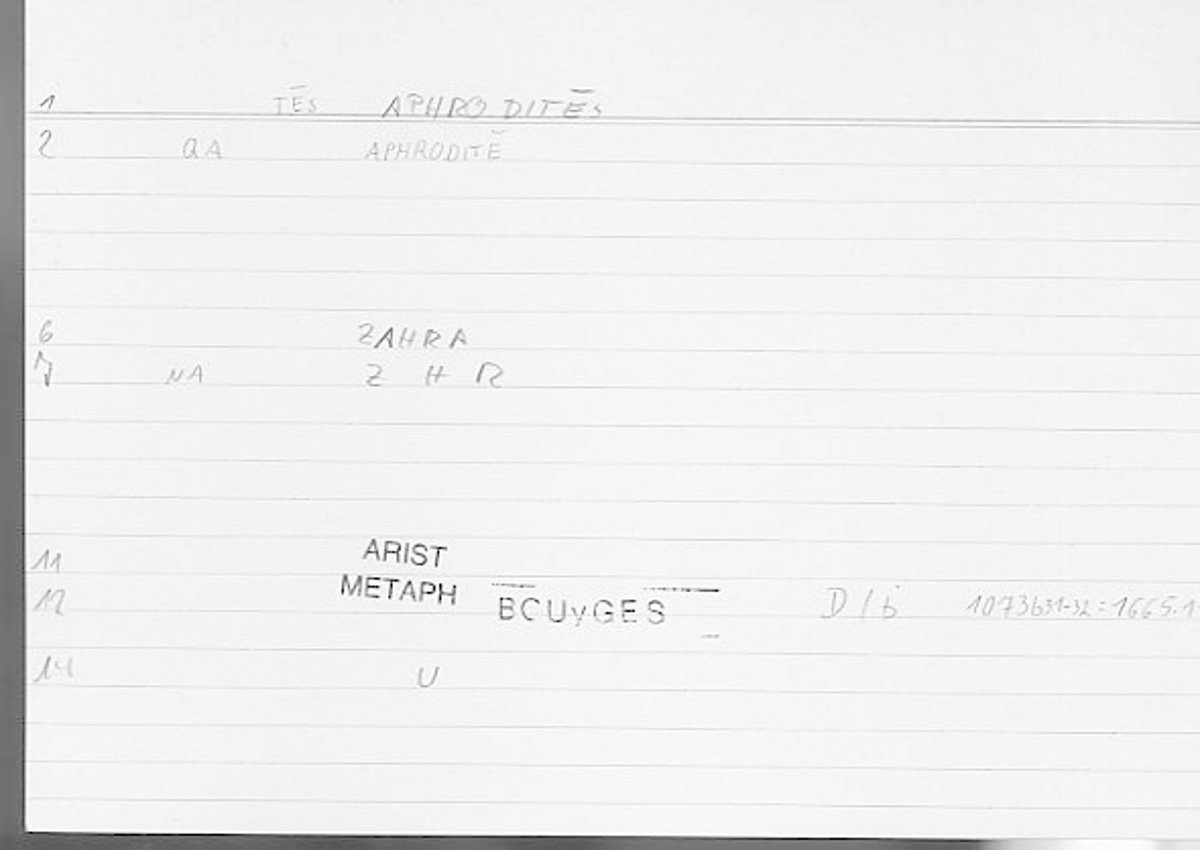 1 TĒS APHRODITĒS
2 aA APHRODITĒ
6 ZAHRA
7 NA Z H R
11 ARIST
12 METAPH BOUyGES D / b 1073b31-32 = 1665.1
14 U